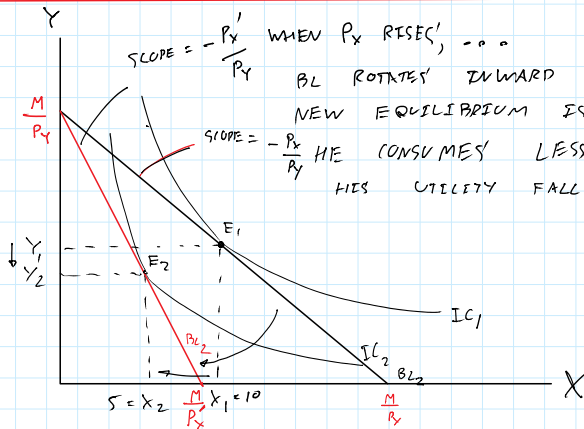 Y
SLOPE = - Px'/Py WHEN Px RISES, ...
BL ROTATES INWARD
M/Py
NEW EQUILIBRIUM IS
SLOPE = - Px/Py HE CONSUMES LESS
HIS UTILITY FALL
E1
Y1
↓ Y2
E2
IC1
BL2
IC2
BL2
X
5 = X2
M/Px'
X1 = 10
M/Px